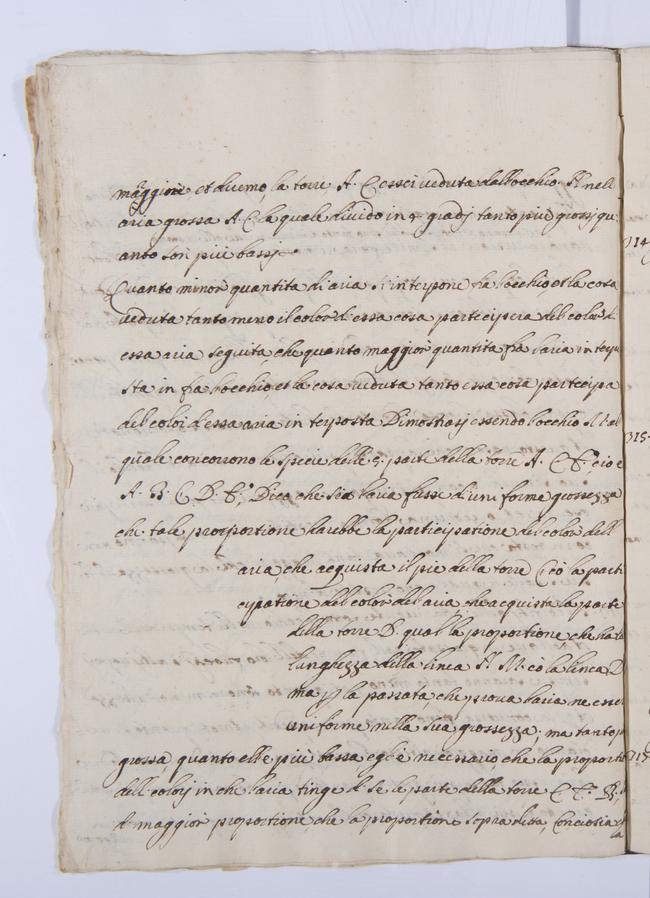 maggiore et diremo, la torre A. C esser veduta dall'occhio H nell
aria grossa A. C la quale divido in 4 gradj tanto più grossj qu.
anto son più bassj
Quanto minor quantita d'aria s'interpone fra l'occhio, et la cosa
veduta tanto meno il color d'essa cosa participera del color d.
essa aria seguita, che quanto maggior quantita fra l'aria interpo
sta in fra l'occhio, et la cosa veduta tanto essa cosa participa
del color d'essa aria interposta Dimostrasj essendo l'occhio al
quale concorrono le specie delle 5. parte della torre A. C. E. cio e
A. B. C. D. E. Dico che se l'aria fusse d'uniforme grossezza
che tale proportione harebbe la participatione del color dell
aria, che acquista il pie della torre Cò la parti
cipatione del color del'aria, che acquista la parte
della torre B. qual'la proportione, che ha la
lunghezza della linea H. M. cò la linea
ma pp la passata, che prova l'aria ne esser
uniforme nella sua grossezza; ma tanto p
grossa, quanto ell'e più bassa, egl'è necessario che la proporti
dell colorj in che l'aria tinge d. se le parte della torre C. E. B.
A maggior proportione che la proportione sopra detta, Conciosia
la
314
315
317